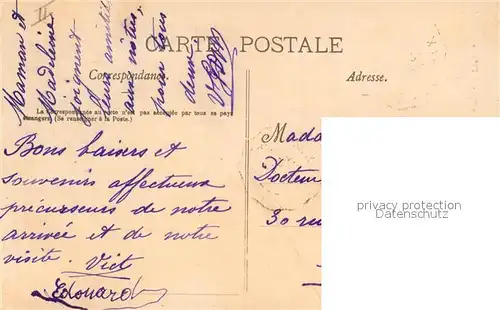 CARTE POSTALE
Correspondance.
Adresse.
La Correspondance au recto n'est pas acceptée par tous les pays
étrangers (Se renseigner à la Poste.)
Maman et
Madeleine
joignent
leurs amitiés
aux nôtres,
pour tous
deux
Bons baisers et
souvenirs affectueux
précurseurs de notre
arrivée et de notre
visite. Vict
Edouard
Mada
Docteur
30 ru
privacy protection
Datenschutz